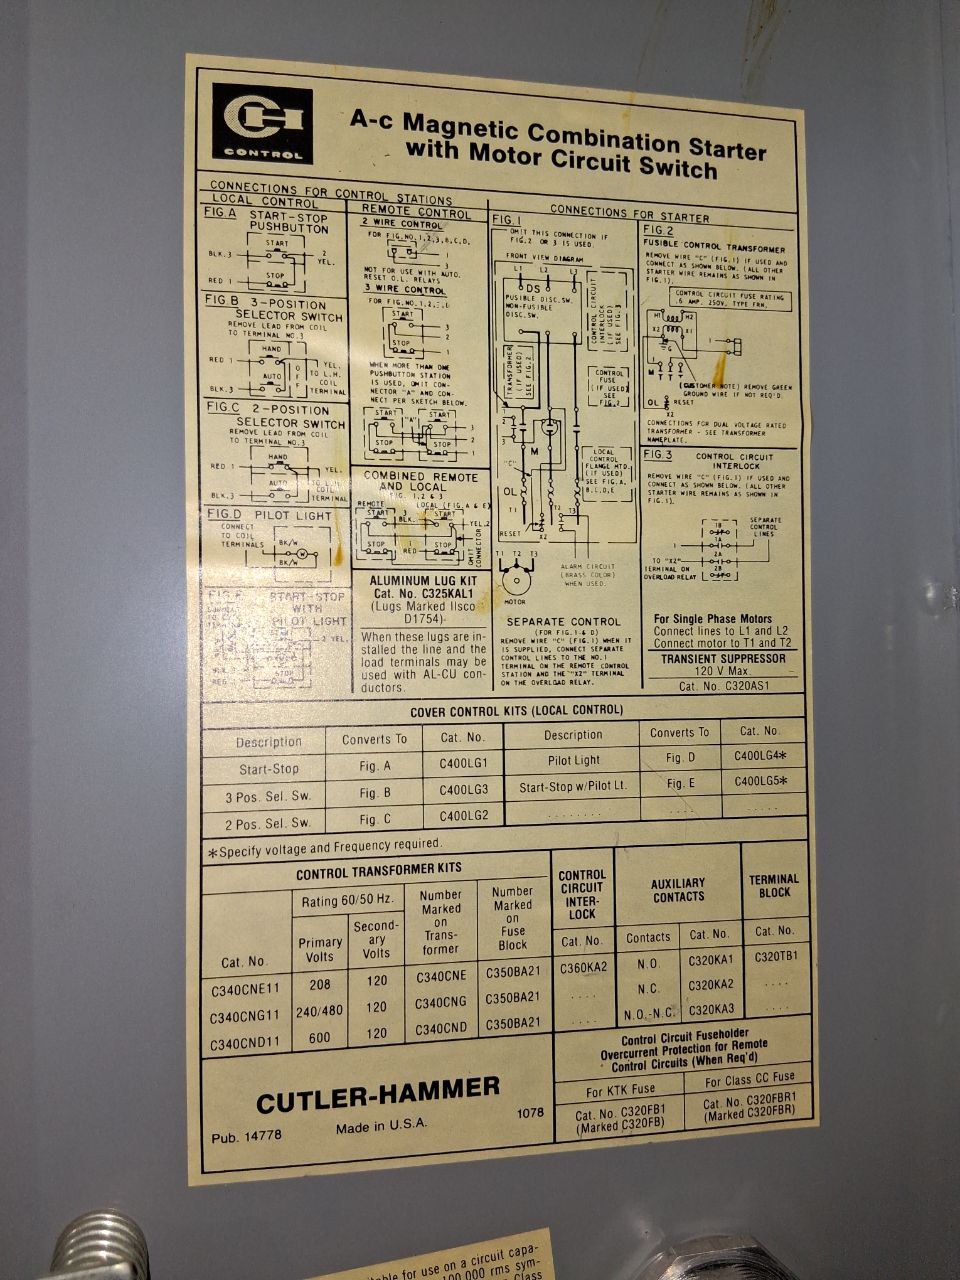 CONTROL
A-c Magnetic Combination Starter
with Motor Circuit Switch
CONNECTIONS FOR CONTROL STATIONS
LOCAL CONTROL
FIG.A START-STOP
PUSHBUTTON
START
BLK.3
2
YEL.
STOP
RED 1
FIG.B 3-POSITION
SELECTOR SWITCH
REMOVE LEAD FROM COIL
TO TERMINAL NO.3
HAND
RED 1
O
F
F
YEL.
TO L.H.
COIL
TERMINAL
AUTO
BLK.3
FIG.C 2-POSITION
SELECTOR SWITCH
REMOVE LEAD FROM COIL
TO TERMINAL NO.3
HAND
RED 1
YEL.
AUTO
COIL
TERMINAL
BLK.3
FIG.D PILOT LIGHT
CONNECT
TO COIL
TERMINALS
BK/W
W
BK/W
START-STOP
WITH
PILOT LIGHT
2 YEL.
REMOTE CONTROL
2 WIRE CONTROL
FOR FIG.NO.1,2,3,B,C,D.
1
3
NOT FOR USE WITH AUTO.
RESET O.L. RELAYS
3 WIRE CONTROL
FOR FIG.NO.1,2,
START
3
2
STOP
1
WHEN MORE THAN ONE
PUSHBUTTON STATION
IS USED, OMIT CON-
NECTOR "A" AND CON-
NECT PER SKETCH BELOW.
START
"A"
START
3
2
STOP
STOP
1
COMBINED REMOTE
AND LOCAL
FIG. 1,2 & 3
REMOTE LOCAL (FIG.A & E)
START
3
BLK.
START
YEL.2
STOP
1
RED
STOP
OMIT
CONNECTOR
ALUMINUM LUG KIT
Cat. No. C325KAL1
(Lugs Marked Ilsco
D1754)
When these lugs are in-
stalled the line and the
load terminals may be
used with AL-CU con-
ductors.
CONNECTIONS FOR STARTER
FIG.1
OMIT THIS CONNECTION IF
FIG.2 OR 3 IS USED.
FRONT VIEW DIAGRAM
L1 L2 L3
DS
FUSIBLE DISC.SW.
NON-FUSIBLE
DISC.SW.
CONTROL CIRCUIT
INTERLOCK
(IF USED)
SEE FIG.3
TRANSFORMER
(IF USED)
SEE FIG.2
CONTROL
FUSE
(IF USED)
SEE
FIG.2
1
2
3
M
"C"
LOCAL
CONTROL
FLANGE MTD.
(IF USED)
SEE FIG.A,
B,C,D,E
OL
T1
T2
T3
RESET
X2
T1 T2 T3
MOTOR
ALARM CIRCUIT
(BRASS COLOR)
WHEN USED.
SEPARATE CONTROL
(FOR FIG.1 & D)
REMOVE WIRE "C" (FIG.1) WHEN IT
IS SUPPLIED, CONNECT SEPARATE
CONTROL LINES TO THE NO.1
TERMINAL ON THE REMOTE CONTROL
STATION AND THE "X2" TERMINAL
ON THE OVERLOAD RELAY.
FIG.2
FUSIBLE CONTROL TRANSFORMER
REMOVE WIRE "C" (FIG.1) IF USED AND
CONNECT AS SHOWN BELOW. (ALL OTHER
STARTER WIRE REMAINS AS SHOWN IN
FIG.1).
CONTROL CIRCUIT FUSE RATING
.6 AMP. 250V. TYPE FRN.
H1 H2
X2 X1
G
1
M T T T
(CUSTOMER NOTE) REMOVE GREEN
GROUND WIRE IF NOT REQ'D.
OL RESET
X2
CONNECTIONS FOR DUAL VOLTAGE RATED
TRANSFORMER - SEE TRANSFORMER
NAMEPLATE.
FIG.3 CONTROL CIRCUIT
INTERLOCK
REMOVE WIRE "C" (FIG.1) IF USED AND
CONNECT AS SHOWN BELOW. (ALL OTHER
STARTER WIRE REMAINS AS SHOWN IN
FIG.1).
SEPARATE
CONTROL
LINES
1B
1A
1
2A
2B
TO "X2"
TERMINAL ON
OVERLOAD RELAY
For Single Phase Motors
Connect lines to L1 and L2
Connect motor to T1 and T2
TRANSIENT SUPPRESSOR
120 V Max.
Cat. No. C320AS1
COVER CONTROL KITS (LOCAL CONTROL)
Description Converts To Cat. No. Description Converts To Cat. No.
Start-Stop Fig. A C400LG1 Pilot Light Fig. D C400LG4*
3 Pos. Sel. Sw. Fig. B C400LG3 Start-Stop w/Pilot Lt. Fig. E C400LG5*
2 Pos. Sel. Sw. Fig. C C400LG2 ........ .....
*Specify voltage and Frequency required.
CONTROL TRANSFORMER KITS
Cat. No.
Rating 60/50 Hz.
Primary
Volts
Second-
ary
Volts
Number
Marked
on
Trans-
former
Number
Marked
on
Fuse
Block
C340CNE11 208 120 C340CNE C350BA21
C340CNG11 240/480 120 C340CNG C350BA21
C340CND11 600 120 C340CND C350BA21
CONTROL
CIRCUIT
INTER-
LOCK
Cat. No.
C360KA2
....
....
AUXILIARY
CONTACTS
Contacts Cat. No.
N.O. C320KA1
N.C. C320KA2
N.O.-N.C. C320KA3
TERMINAL
BLOCK
Cat. No.
C320TB1
....
....
Control Circuit Fuseholder
Overcurrent Protection for Remote
Control Circuits (When Req'd)
For KTK Fuse For Class CC Fuse
Cat. No. C320FB1
(Marked C320FB)
Cat. No. C320FBR1
(Marked C320FBR)
CUTLER-HAMMER
Pub. 14778 Made in U.S.A. 1078
for use on a circuit capa-
100,000 rms sym-
Class